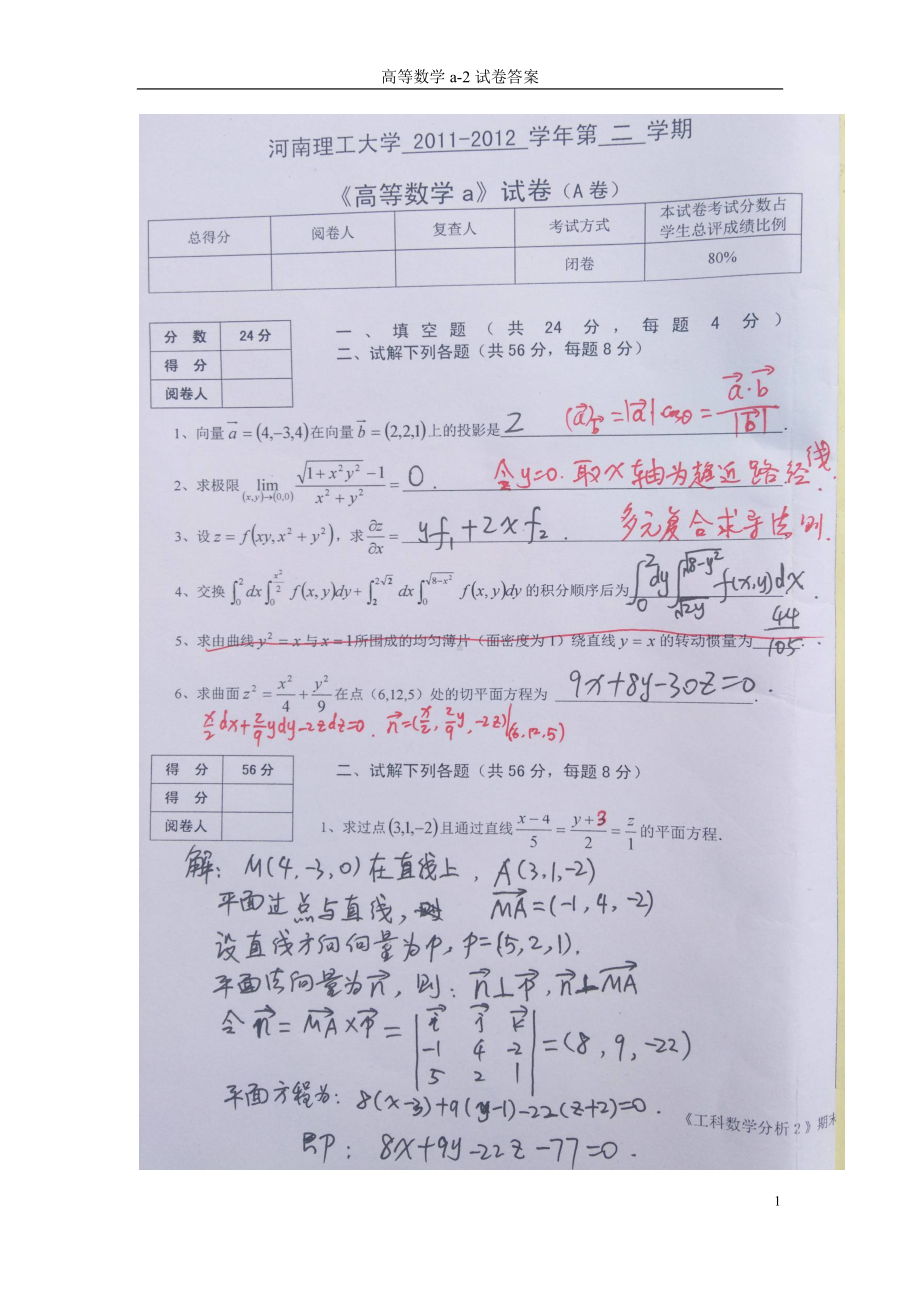 高等数学 a-2 试卷答案
河南理工大学 2011-2012 学年第 二 学期
《高等数学 a》试卷（A 卷）
总得分 阅卷人 复查人 考试方式 本试卷考试分数占学生总评成绩比例
闭卷 80%
分 数 24 分
得 分
阅卷人
一、填空题（共 24 分，每题 4 分）
二、试解下列各题（共 56 分，每题 8 分）
1、向量 $\vec{a}=(4,-3,4)$ 在向量 $\vec{b}=(2,2,1)$ 上的投影是 2 $(\vec{a})_{\vec{b}}=|\vec{a}|\cos\theta=\frac{\vec{a}\cdot\vec{b}}{|\vec{b}|}$ .
2、求极限 $\lim_{(x,y)\to(0,0)}\frac{\sqrt{1+x^2y^2}-1}{x^2+y^2}=$ 0 . 令 y=0. 取 x 轴为趋近路径线 .
3、设 $z=f(xy,x^2+y^2)$，求 $\frac{\partial z}{\partial x}=$ $yf_1+2xf_2$ . 多元复合求导法则.
4、交换 $\int_0^2 dx\int_0^{\frac{x^2}{2}} f(x,y)dy+\int_2^{2\sqrt{2}} dx\int_0^{\sqrt{8-x^2}} f(x,y)dy$ 的积分顺序后为 $\int_0^2 dy\int_{\sqrt{2y}}^{\sqrt{8-y^2}} f(x,y)dx$ .
5、求由曲线 $y^2=x$ 与 $x=1$ 所围成的均匀薄片（面密度为 1）绕直线 $y=x$ 的转动惯量为 $\frac{44}{105}$ .
6、求曲面 $z^2=\frac{x^2}{4}+\frac{y^2}{9}$ 在点（6,12,5）处的切平面方程为 9x+8y-30z=0 .
$\frac{x}{2}dx+\frac{2}{9}ydy-2zdz=0$ . $\vec{n}=(\frac{x}{2},\frac{2}{9}y,-2z)|_{(6,12,5)}$
得 分 56 分
得 分
阅卷人
二、试解下列各题（共 56 分，每题 8 分）
1、求过点 $(3,1,-2)$ 且通过直线 $\frac{x-4}{5}=\frac{y+3}{2}=\frac{z}{1}$ 的平面方程.
解: M(4,-3,0)在直线上, A(3,1,-2)
平面过点与直线, $\vec{MA}=(-1,4,-2)$
设直线方向向量为 p, p=(5,2,1).
平面法向量为 $\vec{n}$, 则: $\vec{n}\perp\vec{p}$, $\vec{n}\perp\vec{MA}$
令 $\vec{n}=\vec{MA}\times\vec{p}=\begin{vmatrix}\vec{i}&\vec{j}&\vec{k}\\-1&4&-2\\5&2&1\end{vmatrix}=(8,9,-22)$
平面方程为: 8(x-3)+9(y-1)-22(z+2)=0 .
即: 8x+9y-22z-77=0 .
《工科数学分析 2 》期末
1